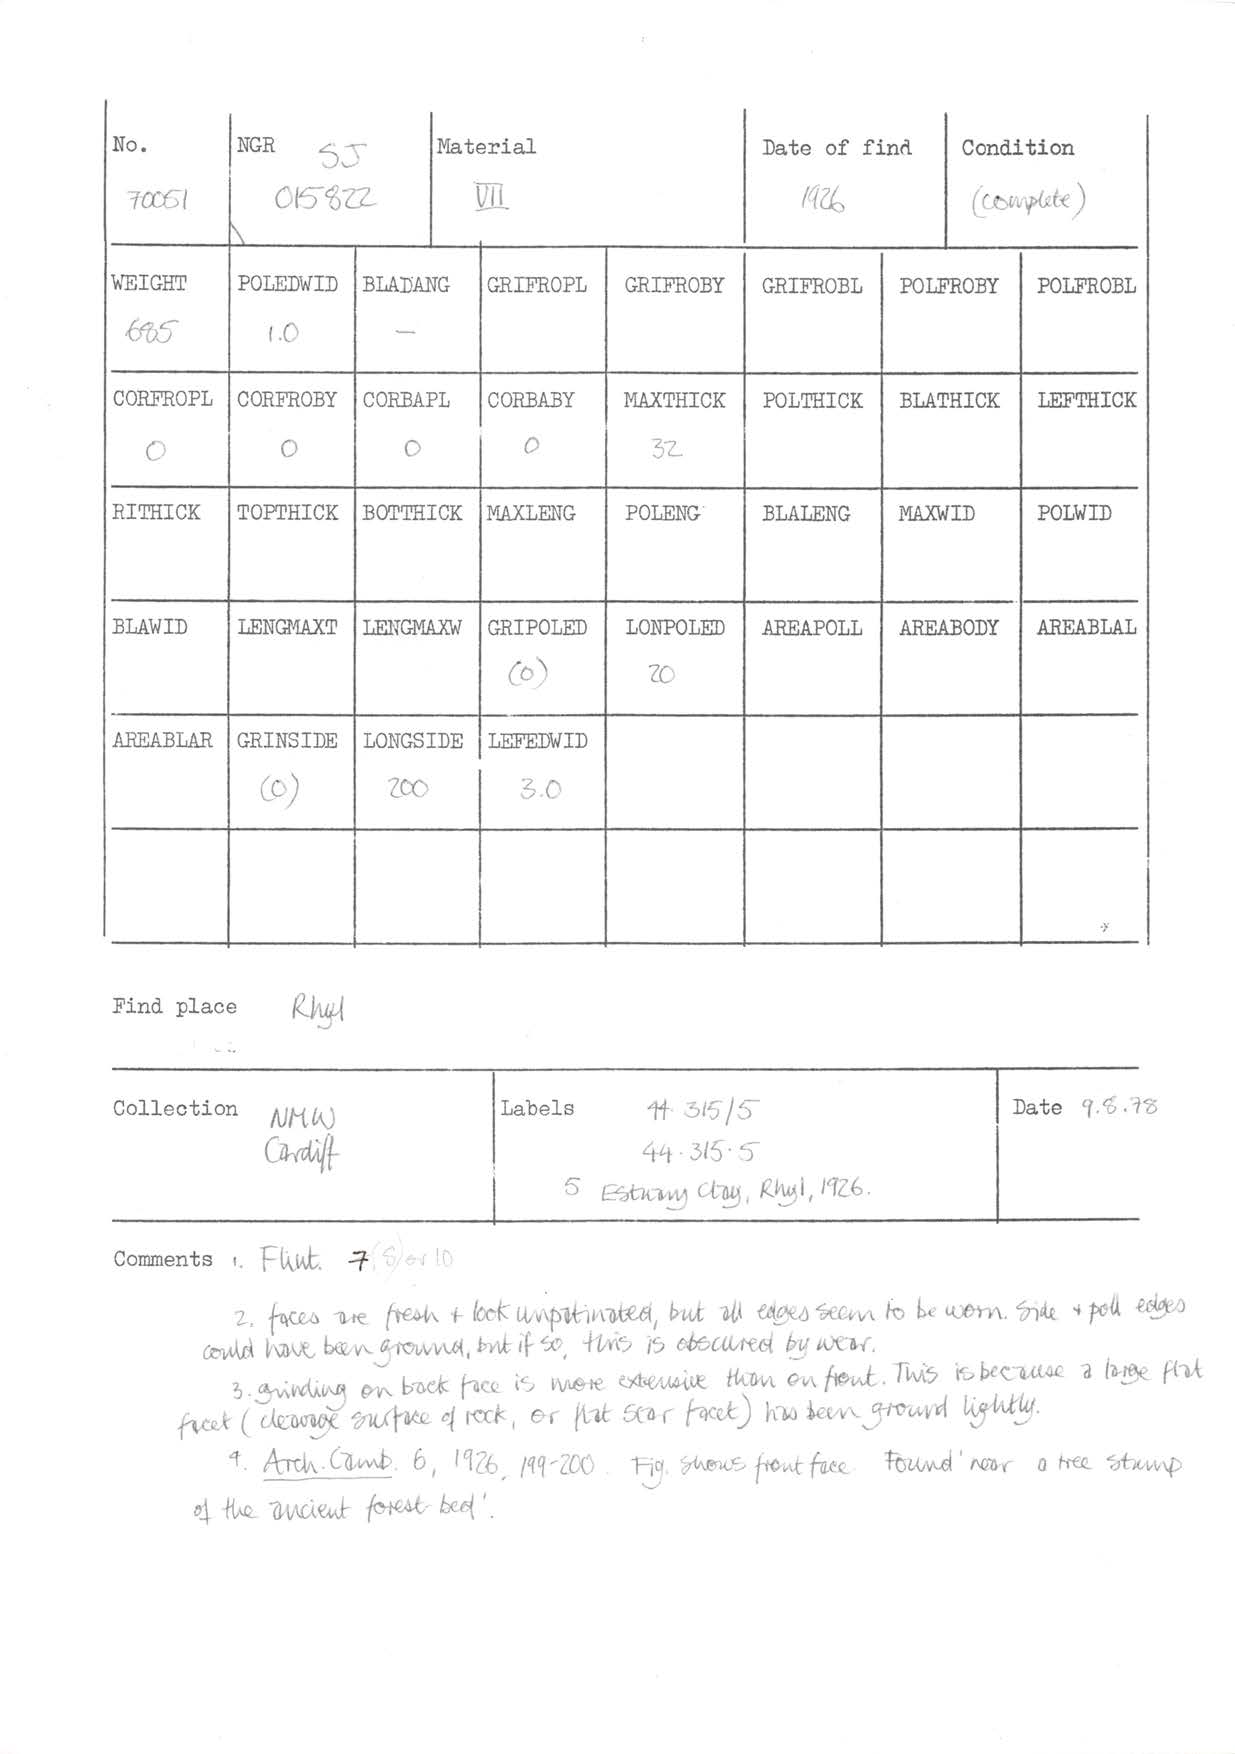 No. NGR SJ Material Date of find Condition
70051 015822 VII 1926 (complete)
WEIGHT POLEDWID BLADANG GRIFROPL GRIFROBY GRIFROBL POLFROBY POLFROBL
685 1.0 —
CORFROPL CORFROBY CORBAPL CORBABY MAXTHICK POLTHICK BLATHICK LEFTHICK
0 0 0 0 32
RITHICK TOPTHICK BOTTHICK MAXLENG POLENG BLALENG MAXWID POLWID
BLAWID LENGMAXT LENGMAXW GRIPOLED LONPOLED AREAPOLL AREABODY AREABLAL
(0) 20
AREABLAR GRINSIDE LONGSIDE LEFEDWID
(0) 200 3.0
Find place Rhyl
Collection NMW Labels 44.315/5 Date 9.8.78
Cardiff 44.315.5
5 Estuary Clay, Rhyl, 1926.
Comments 1. Flint. 7 (8) or 10
2. faces are fresh + look unpatinated, but all edges seem to be worn. Side + poll edges
could have been ground, but if so, this is obscured by wear.
3. grinding on back face is more extensive than on front. This is because a large flat
facet (cleavage surface of rock, or flat scar facet) has been ground lightly.
4. Arch. Camb. 6, 1926, 199-200. Fig. shows front face. Found 'near a tree stump
of the ancient forest-bed'.